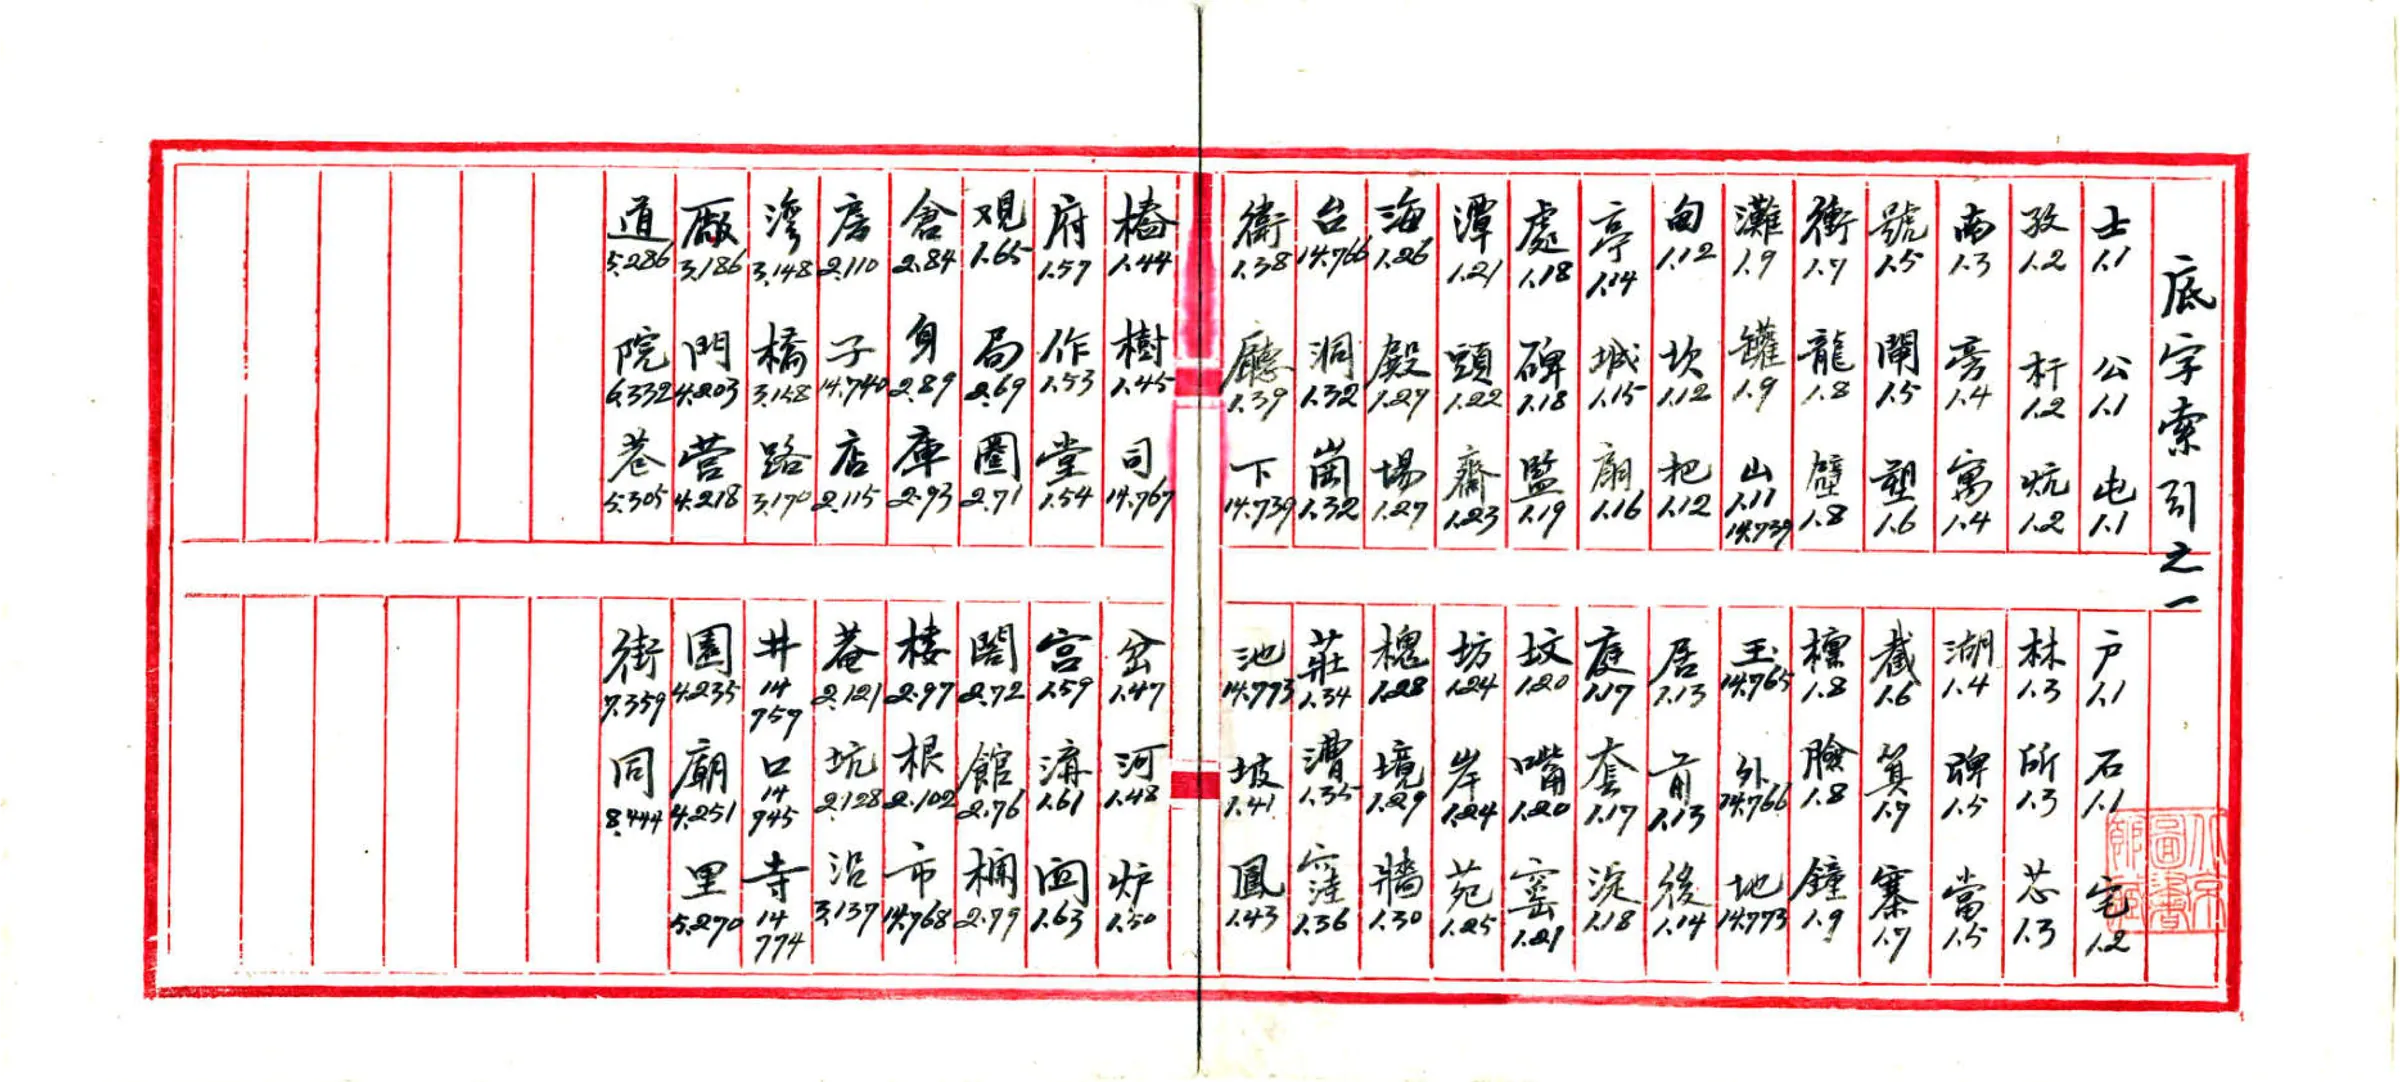 底字索引之一
士1.1 公1.1 屯1.1 户1.1 石1.1 宅1.2
孜1.2 杆1.2 炕1.2 林1.3 所1.3 芯1.3
南1.3 旁1.4 寓1.4 湖1.4 1.5 當1.5
號1.5 閘1.5 塑1.6 截1.6 箕1.7 寨1.7
衝1.7 龍1.8 壁1.8 檁1.8 臉1.8 鐘1.9
灘1.9 罐1.9 山1.11 14.739 玉14.765 外14.766 地14.773
甸1.12 坎1.12 把1.12 居1.13 前1.13 後1.14
亭1.14 城1.15 1.16 庭1.17 套1.17 淀1.18
處1.18 碑1.18 監1.19 坟1.20 嘴1.20 窑1.21
潭1.21 頭1.22 齋1.23 坊1.24 岸1.24 苑1.25
海1.26 殿1.27 場1.27 槐1.28 境1.29 牆1.30
台14.766 洞1.32 崗1.32 莊1.34 漕1.35 窪1.36
衛1.38 廳1.39 下14.739 池14.773 坡1.41 鳳1.43
橋1.44 樹1.45 司14.767 岔1.47 河1.48 炉1.50
府1.57 作1.53 堂1.54 宫1.59 溝1.61 1.63
观1.65 局2.69 圈2.71 閣2.72 館2.76 2.79
倉2.84 身2.89 庫2.93 楼2.97 根2.102 市14.768
房2.110 子14.740 店2.115 菴2.121 坑2.128 沿3.137
湾3.148 橋3.158 路3.170 井14 757 口14 945 寺14 774
厰3.186 門4.203 营4.218 園4.235 廟4.251 里5.270
道5.286 院6.332 巷5.305 街7.359 同8.444